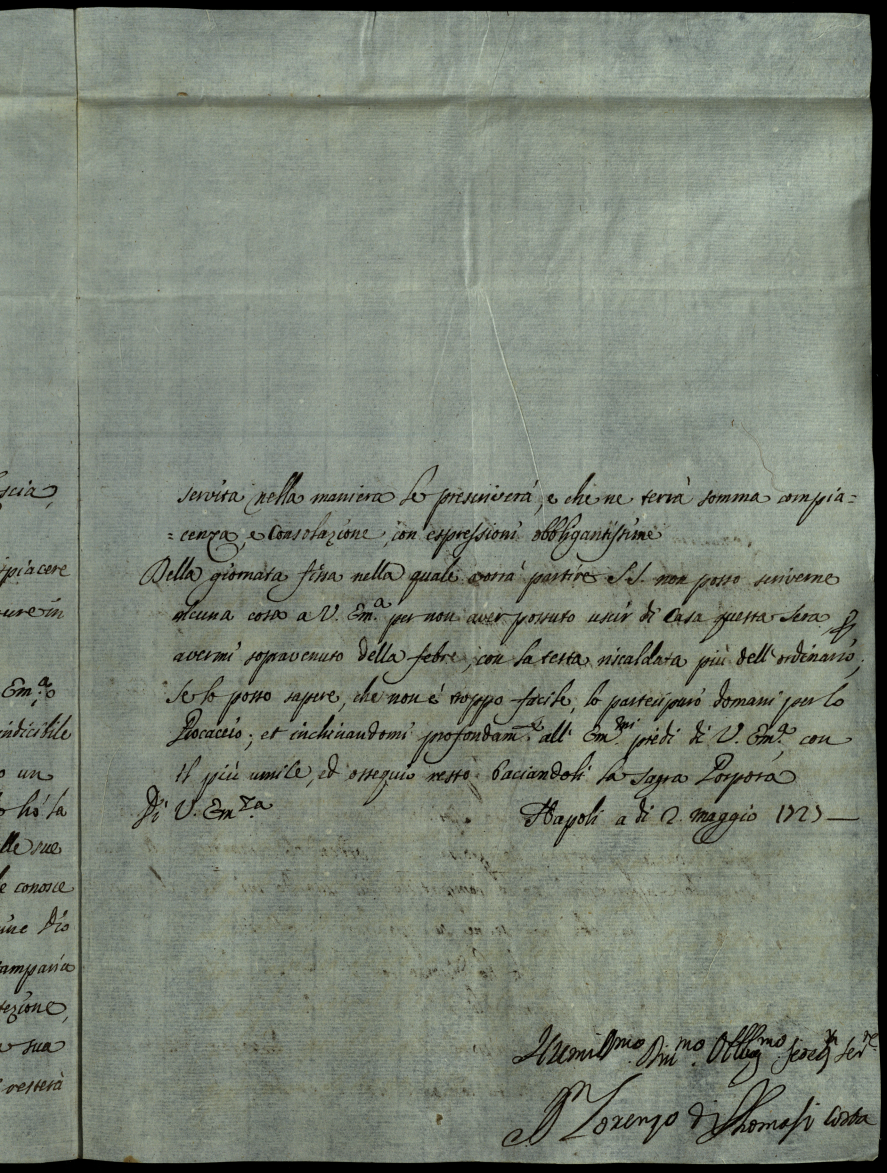 scia,
spiacere
ure in
Em.ª
indicibile
o un
hó la
lle sue
le conosce
Dio
ampana
tezione,
sua
resterà
servita nella maniera le prescriverá, e che ne terrà somma compia=
=cenza, e Consolazione, con espressioni obbligantissime
Della giornata fissa nella quale vorrà partire S.S. non posso scriverne
alcuna cosa a V. Em.ª per non aver possuto uscir di Casa questa sera
avermi sopravenuto della febre, con la testa riscaldata più dell'ordinario;
se lo posso sapere, che non é troppo facile, lo parteciparó domani per lo
Procaccio; et inchinandomi profondam.e all' Em.mi piedi di V. Em.ª con
il più umile, ed ossequio resto baciandoli la sagra Porpora
Di V. Em.za Napoli a di 2 maggio 1725
Humil.mo Div.mo Obblig.mo Ser.re
Lorenzo di Thomasi Costa